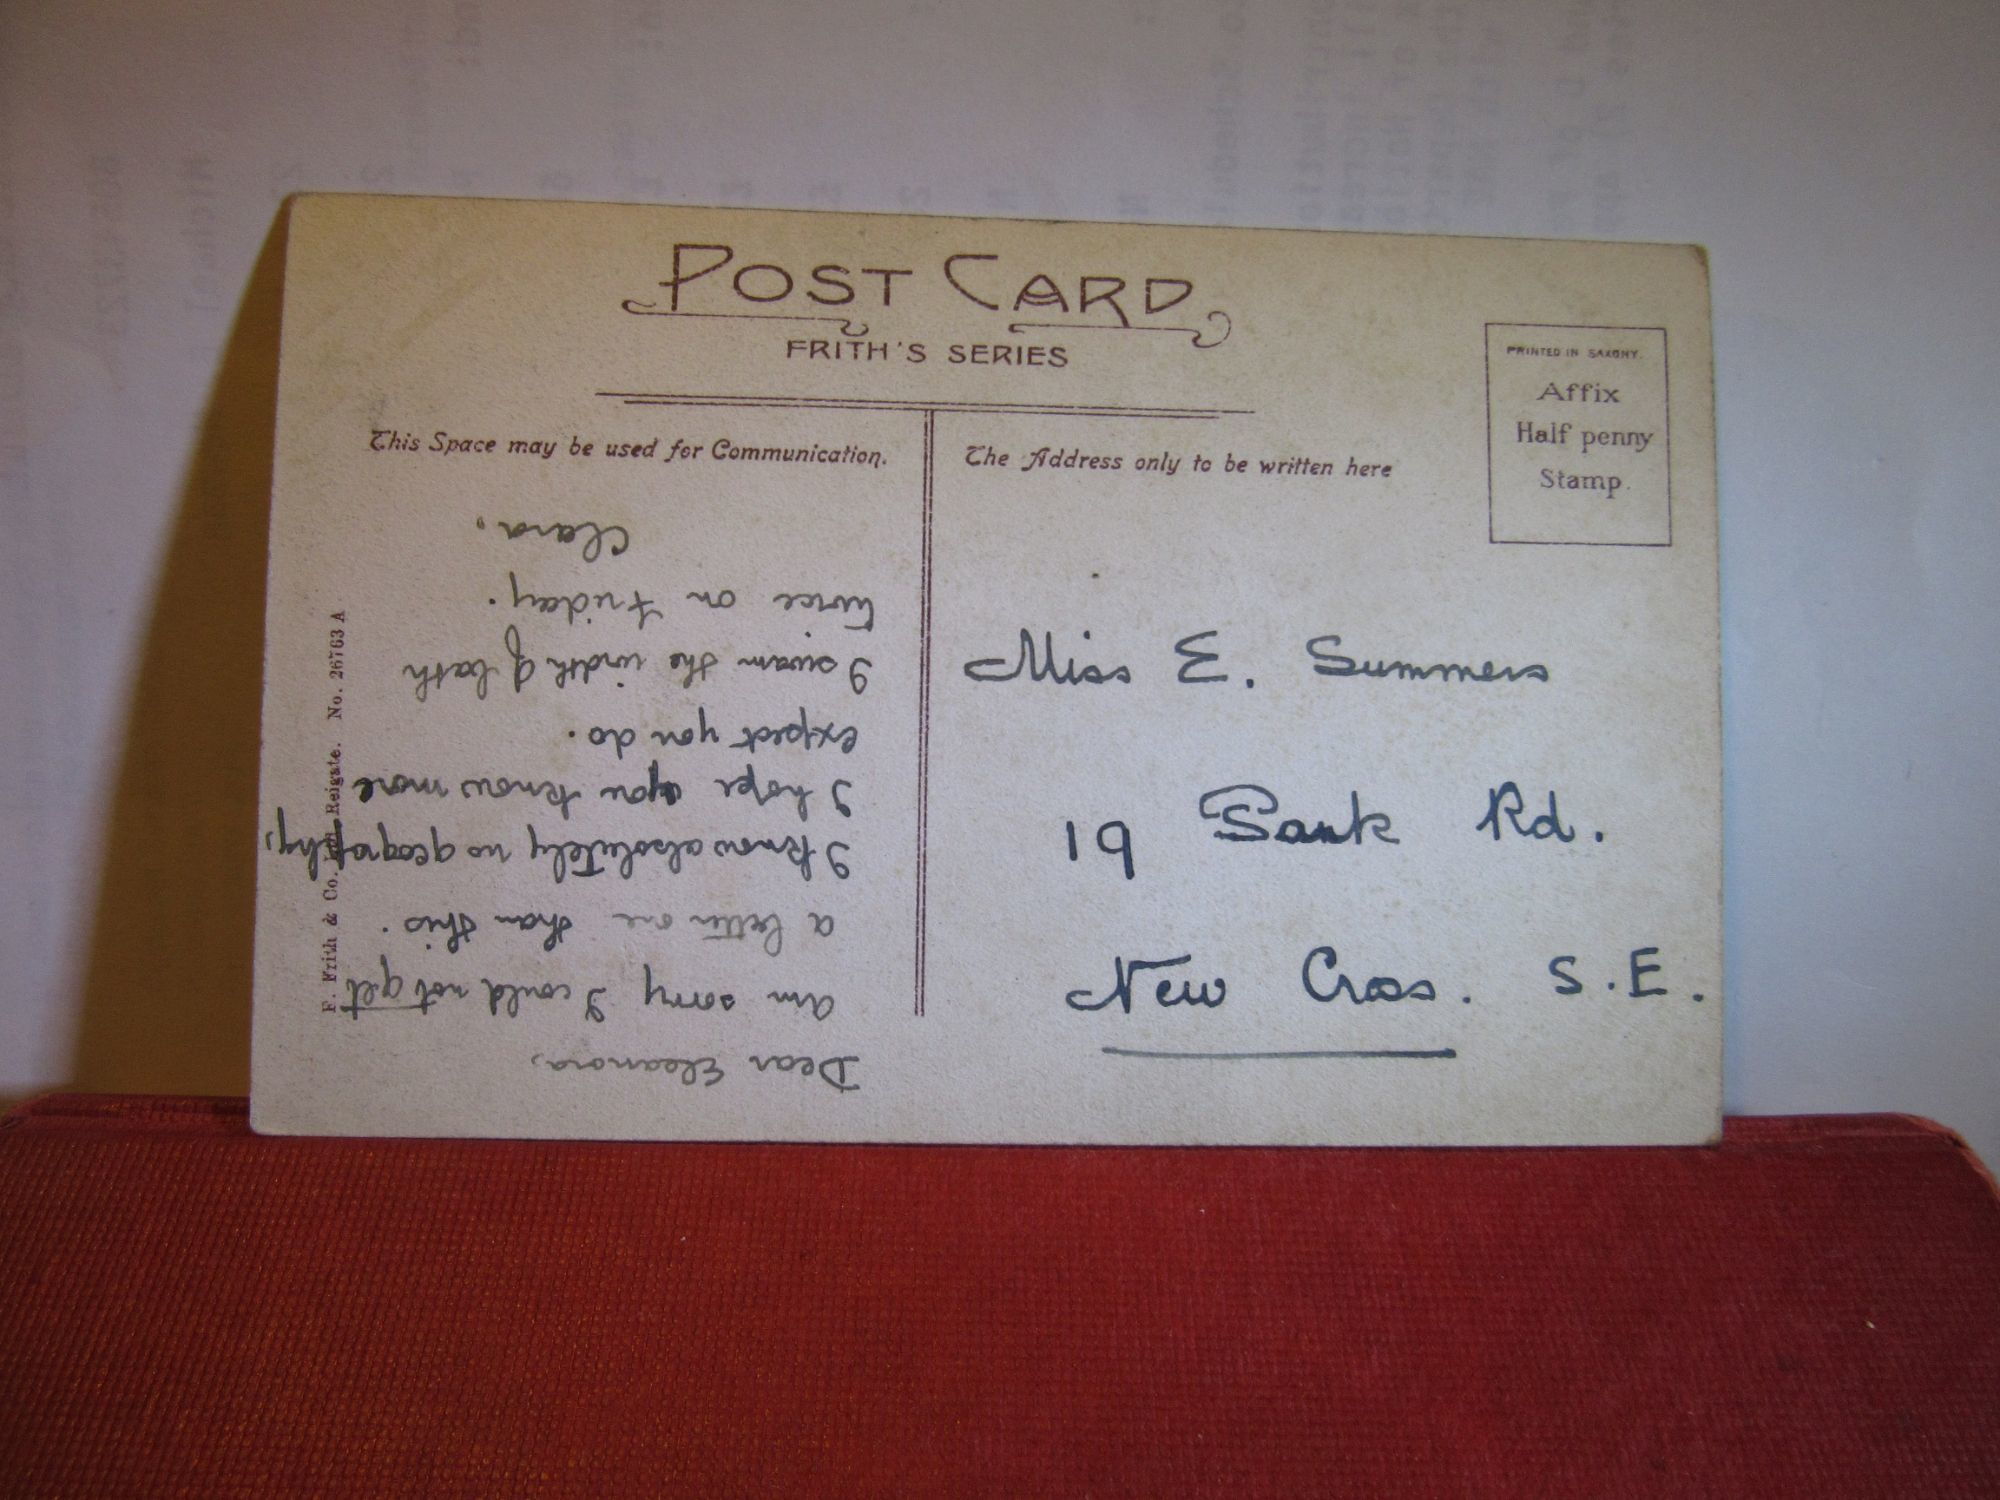 POST CARD
FRITH'S SERIES
PRINTED IN SAXONY.
Affix
Half penny
Stamp.
This Space may be used for Communication.
The Address only to be written here
Dear Eleanora,
am sorry I could not get
a better one than this.
I know absolutely no geography,
I hope you know more
expect you do.
I swam the width of bath
twice on Friday.
Clara,
Miss E. Summers
19 Rd.
New Cross. S.E.
F. Frith & Co. Reigate. No. 26763 A